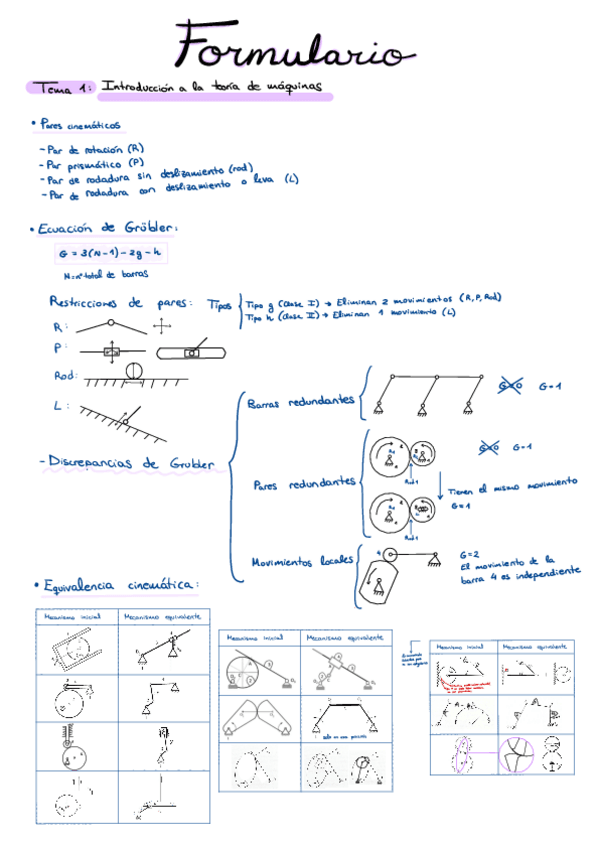 Formulario
Tema 1: Introducción a la teoría de máquinas
• Pares cinemáticos
- Par de rotación (R)
- Par prismático (P)
- Par de rodadura sin deslizamiento (rod)
- Par de rodadura con deslizamiento o leva (L)
• Ecuación de Grübler:
G = 3(N-1) - 2g - h
N = nº total de barras
Restricciones de pares: Tipos
Tipo g (clase I) → Eliminan 2 movimientos (R, P, Rod)
Tipo h (clase II) → Eliminan 1 movimiento (L)
R:
P:
Rod:
L:
- Discrepancias de Grubler
Barras redundantes
G=0 G=1
Pares redundantes
Rod 1
G=0 G=1
Tienen el mismo movimiento
G=1
Rod 1
Movimientos locales
4
G=2
El movimiento de la
barra 4 es independiente
• Equivalencia cinemática:
Mecanismo inicial Mecanismo equivalente
Mecanismo inicial Mecanismo equivalente
Mecanismo inicial Mecanismo equivalente